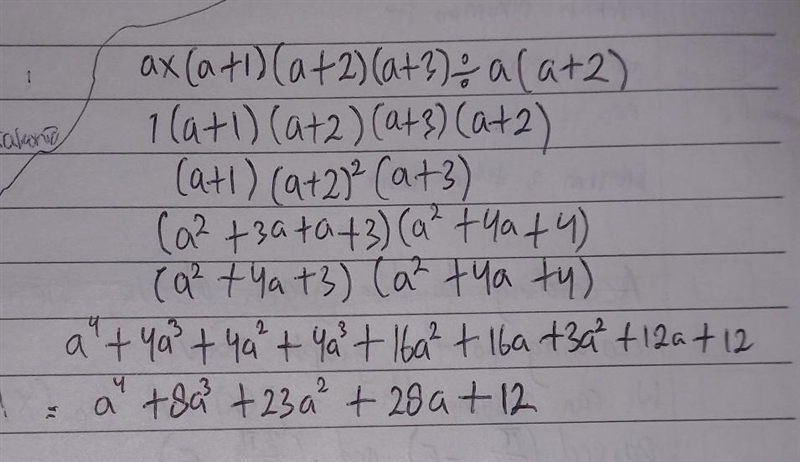 ax(a+1)(a+2)(a+3)÷a(a+2)
1(a+1)(a+2)(a+3)(a+2)
(a+1)(a+2)²(a+3)
(a²+3a+a+3)(a²+4a+4)
(a²+4a+3)(a²+4a+4)
a⁴+4a³+4a²+4a³+16a²+16a+3a²+12a+12
= a⁴+8a³+23a²+28a+12